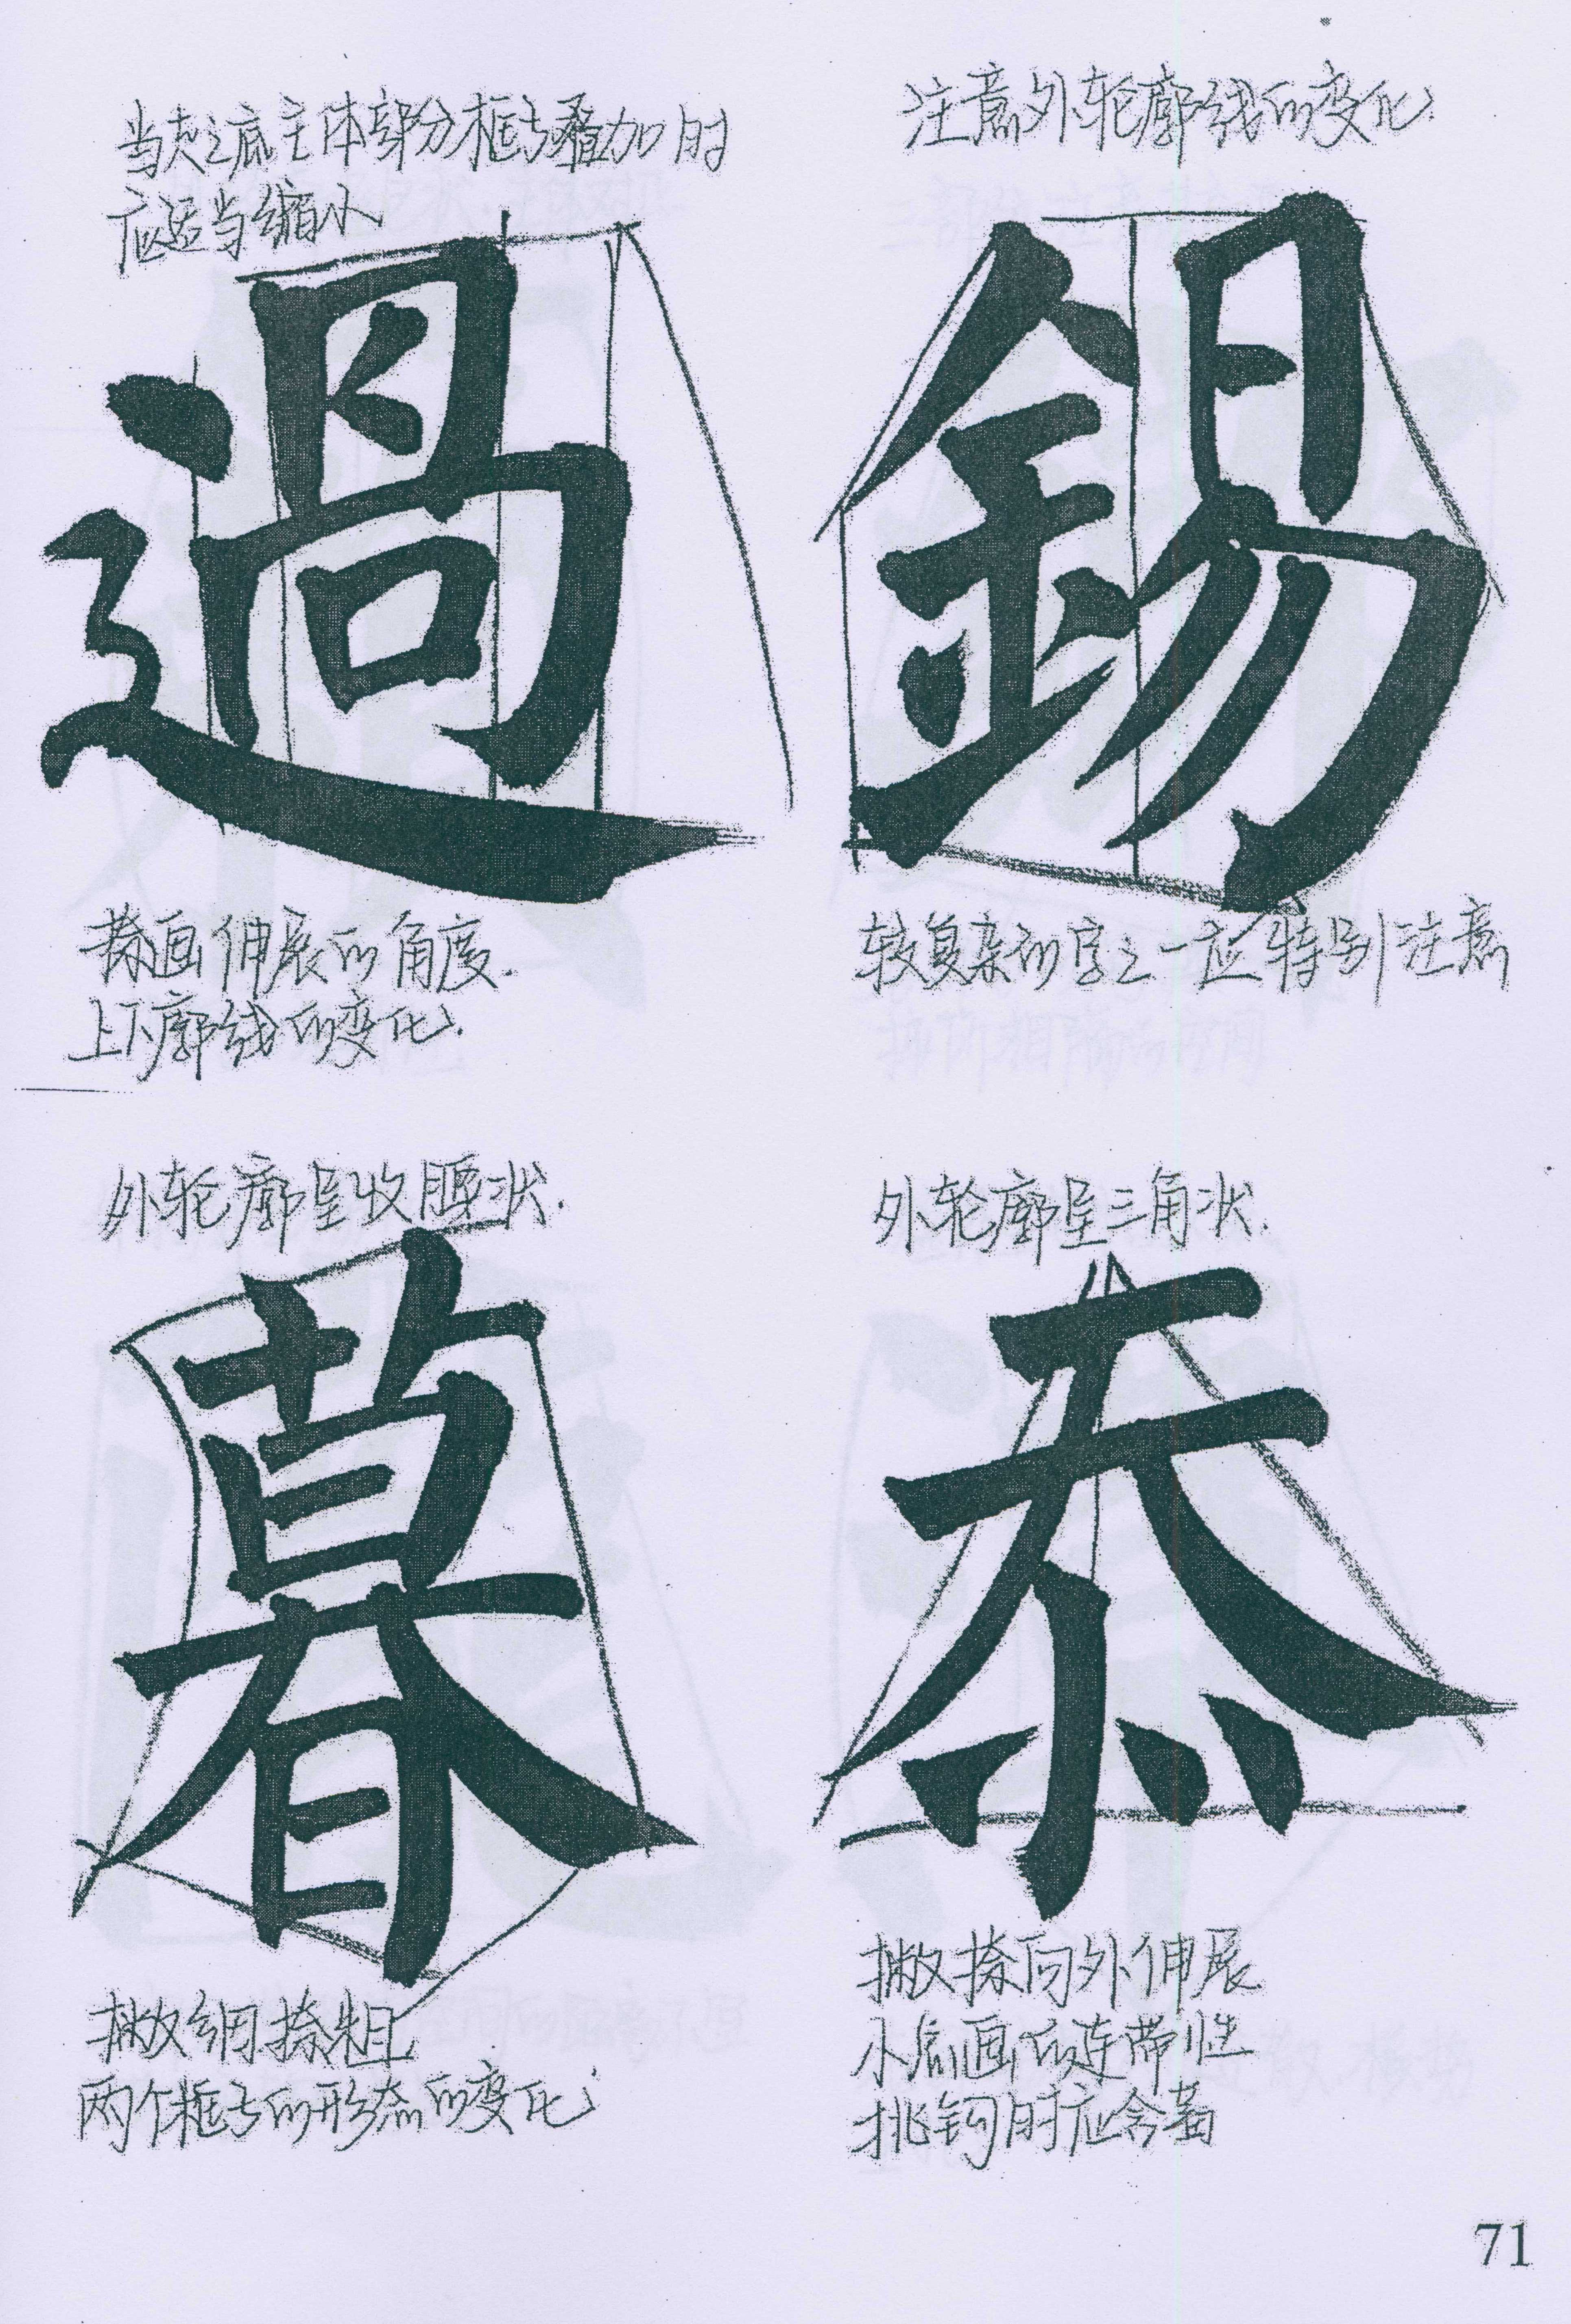 当走之底主体部分框与叠加时
应适当缩小
過
捺画伸展的角度.
上下廓线的变化.
注意外轮廓线的变化.
錫
较复杂的字之一应特别注意
外轮廓呈收腰状.
暮
撇细捺粗
两个框与的形态的变化
外轮廓呈三角状.
恭
撇捺向外伸展
小点画的连带性
挑钩时应含蓄
71